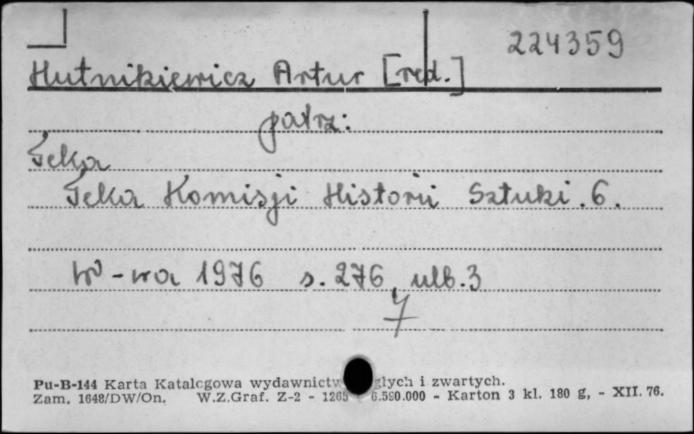 224359
Hutnikiewicz Artur [red.]
patrz:
Teka
Teka Komisji Historii Sztuki. 6.
W-wa 1976 s. 276, ulb. 3
7
Pu-B-144 Karta Katalogowa wydawnictw głych i zwartych.
Zam. 1648/DW/On. W.Z.Graf. Z-2 - 1265 6.590.000 - Karton 3 kl. 180 g, - XII. 76.